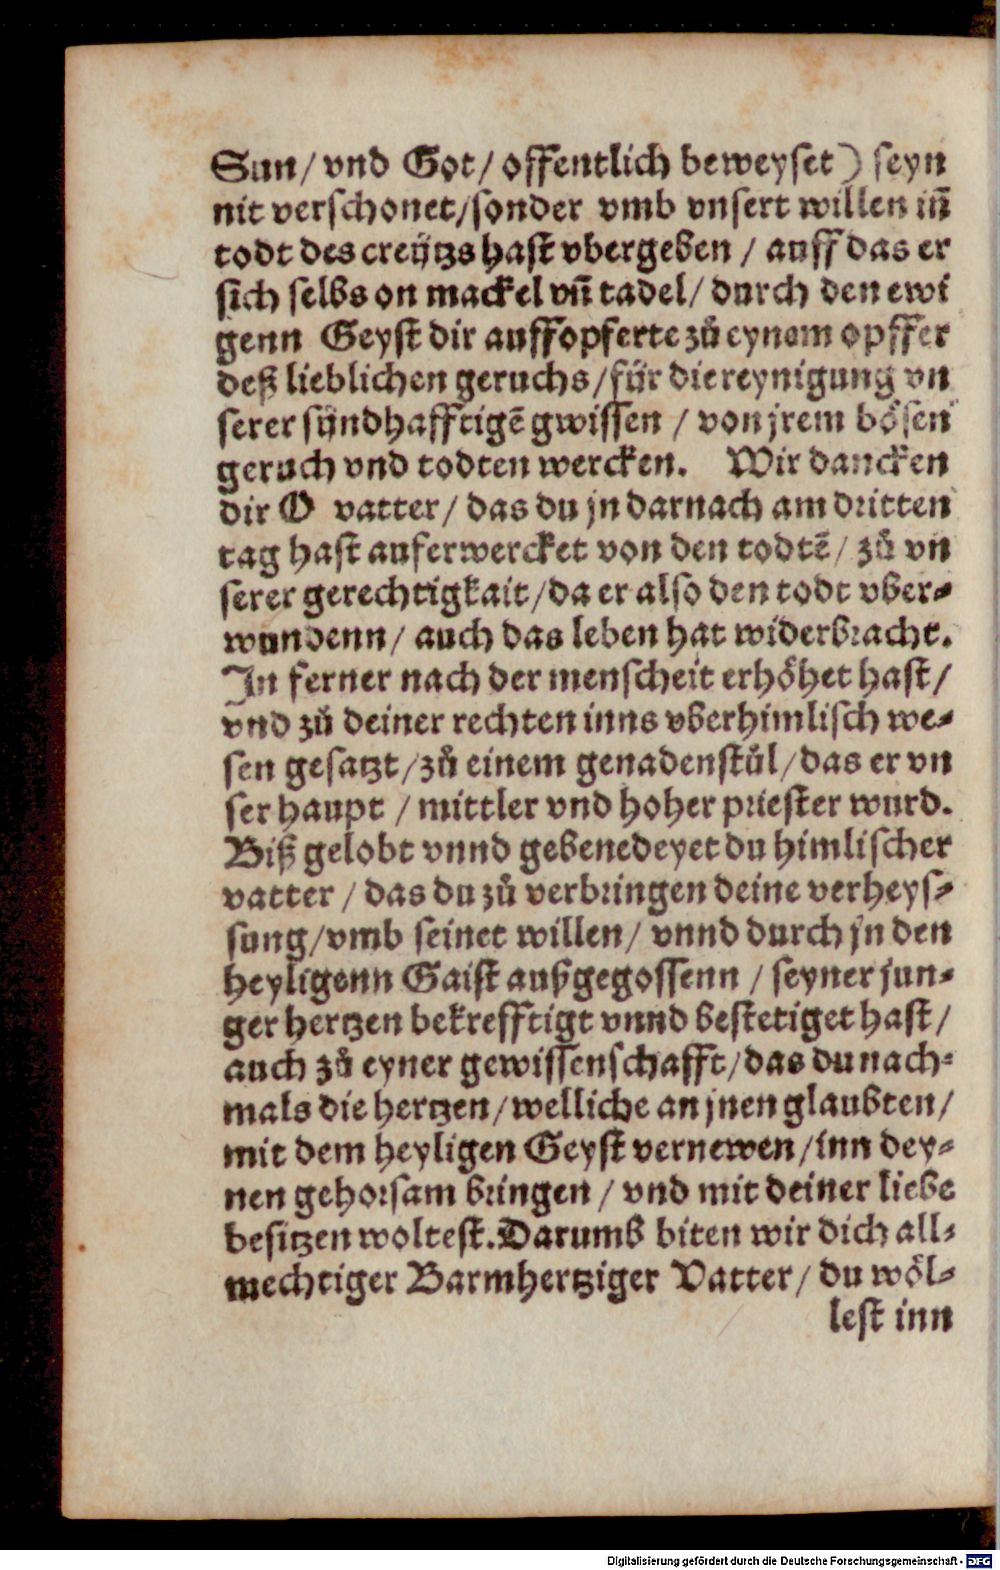 Sun/ vnd Got/ offentlich beweyset) seyn
nit verschonet/sonder vmb vnsert willen iñ
todt des creÿtzs hast vbergeben / auff das er
sich selbs on mackel vñ tadel/ durch den ewi
genn Geyst dir auffopferte zů eynem opffer
deß lieblichen geruchs/für die reynigung vn
serer sündhafftigē gwissen / von jrem bösen
geruch vnd todten wercken. Wir dancken
dir O vatter/ das du jn darnach am dritten
tag hast auferwercket von den todtē/ zů vn
serer gerechtigkait/da er also den todt vber⸗
wundenn/ auch das leben hat widerbracht.
In ferner nach der menscheit erhöhet hast/
vnd zů deiner rechten inns vberhimlisch we⸗
sen gesatzt/zů einem genadenstůl/das er vn
ser haupt / mittler vnd hoher priester wurd.
Biß gelobt vnnd gebenedeyet du himlischer
vatter / das du zů verbringen deine verheys⸗
sung/vmb seinet willen/ vnnd durch jn den
heyligenn Gaist außgegossenn / seyner jun⸗
ger hertzen bekrefftigt vnnd bestetiget hast/
auch zů eyner gewissenschafft/das du nach⸗
mals die hertzen/welliche an jnen glaubten/
mit dem heyligen Geyst vernewen/inn dey⸗
nen gehorsam bringen/ vnd mit deiner liebe
besitzen woltest. Darumb biten wir dich all⸗
mechtiger Barmhertziger Vatter/ du wöl⸗
lest inn
Digitalisierung gefördert durch die Deutsche Forschungsgemeinschaft - DFG